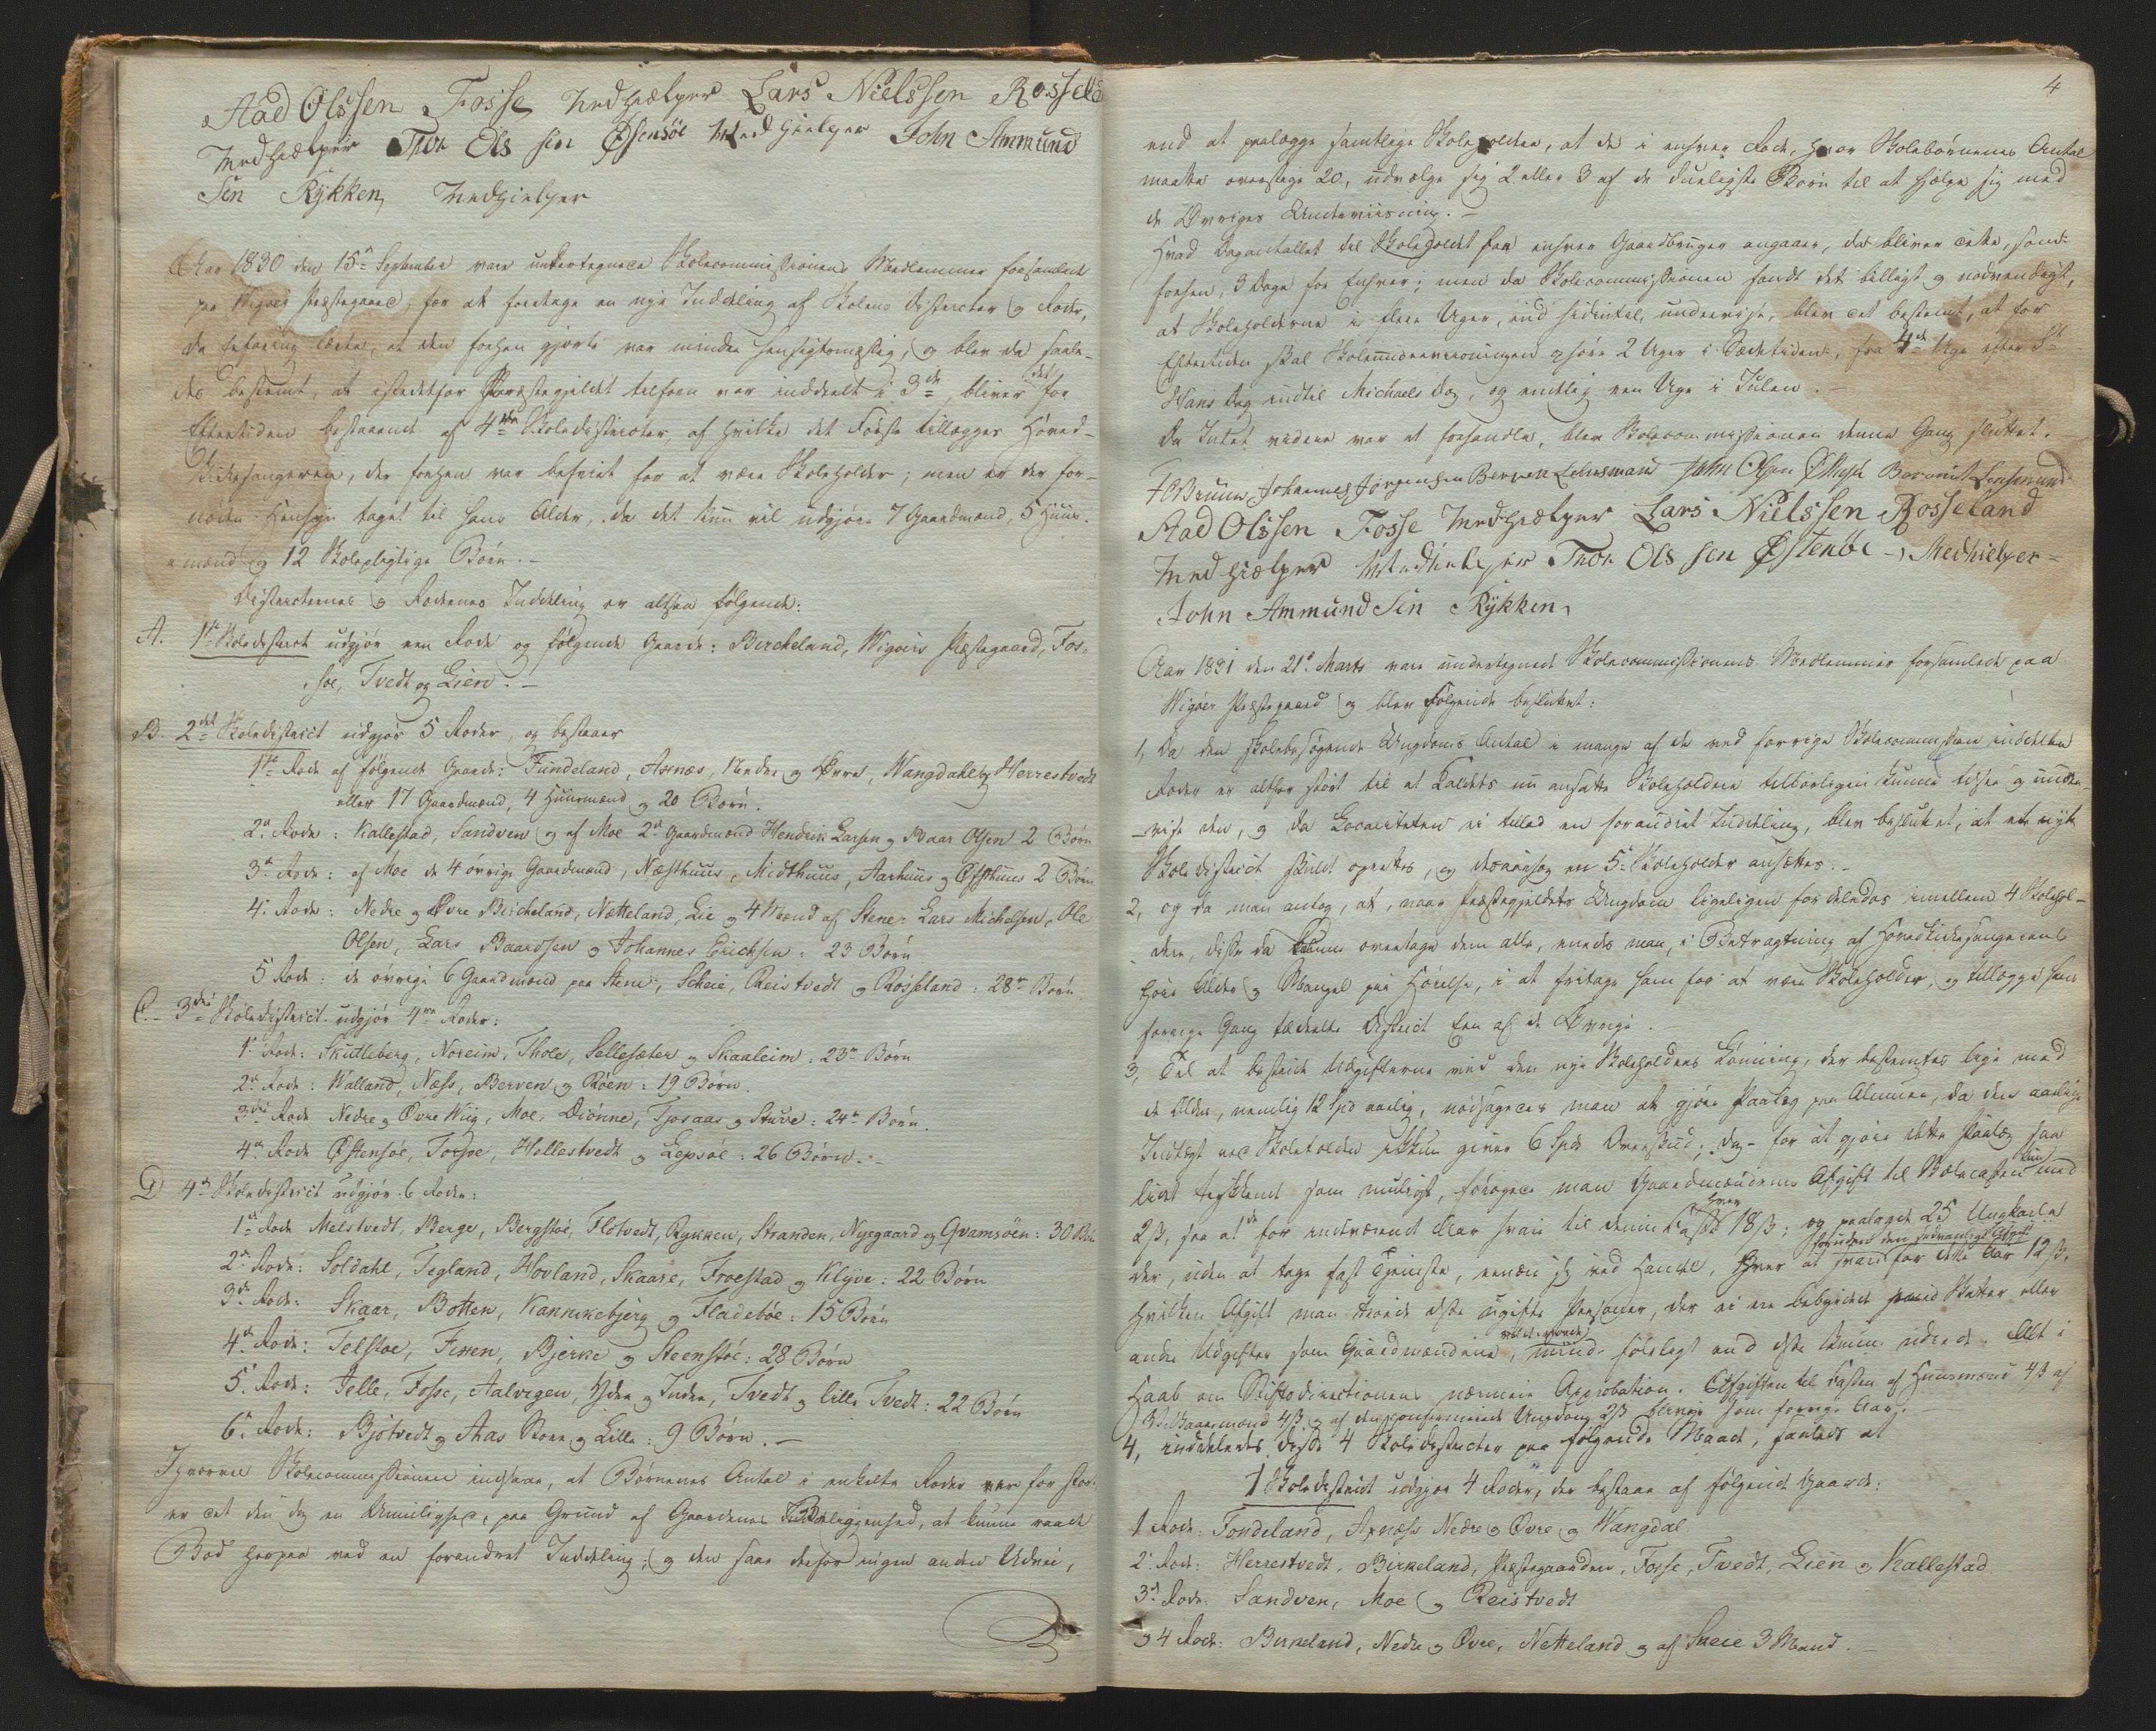 Aad Olssen Fosse Medhiælper Lars Nielssen Rosseland
Medhiælper Thor Ols sen Østensøe Medhielper John Ammund
Sen Rykken Medhielper
Aar 1830 den 15de September vare undertegnede Skolecommissionens Medlemmer forsamlede
paa Wigøers Præstegaard, for at foretage en nye Inddeling af Skolens Districter og Roder,
da Erfaring lærte, at den forhen gjorte var mindre hensigtsmæssig, og blev da saale-
des bestemt, at istedetfor Præstegjeldet tilforn var inddeelt i 3de, bliver det for
Eftertiden bestaaende af 4re Skoledistricter, af hvilke det Første tillægges Hoved-
Kirkesangeren, der forhen var befriet for at være Skoleholder; men er der for-
noden Hensyn taget til hans Alder, da det kun vil udgjøre 7 Gaardmænd, 5 Huus-
mænd og 12 Skolepligtige Børn.-
Districternes og Rodernes Inddeling er altsaa følgende:
A. 1ste Skoledistrict udgjør een Rode og følgende Gaarde: Birckeland, Wigøers Præstegaard, Fos-
se, Tvedt og Lien.-
B. 2det Skoledistrict udgjør 5 Roder, og bestaaer
1ste Rode af følgende Gaarde: Fundeland, Axnæs, Nedre og Øvre, Wangdahl og Herrestvedt
eller 17 Gaardmænd, 4 Huusmænd og 20 Børn.
2den Rode: Kallestad, Sandven og af Moe 2de Gaardmænd Hendrik Larsen og Baar Olsen 2 Børn
3de Rode: af Moe de 4 øvrige Gaardmænd, Næsthuus, Midthuus, Aarhuus og Øfsthuus 2 Børn
4de Rode: Nedre og Øvre Birckeland, Nætteland, Lie og 4 Mænd af Stene: Lars Michelsen, Ole
Olsen, Lars Baardsen og Johannes Erichsen: 23 Børn
5 Rode: de øvrige 6 Gaardmænd paa Stene, Scheie, Reistvedt og Rosseland: 28 Børn.
C.- 3die Skoledistrict udgjør 4re Roder:
1ste Rode: Skutleberg, Noreim, Thole, Sellesæter og Skaaleim: 23 Børn
2den Rode: Walland, Næss, Berven og Røen: 19 Børn.
3die Rode Nedre og Øvre Wiig, Moe, Diønne, Tjosaas og Sture: 24 Børn.
4de Rode Østensøe, Torsoe, Hollestvedt og Lepsøe: 26 Børn.-
D 4de Skoledistrict udgjør 6 Roder:
1ste Rode Melstvedt, Berge, Bergstøe, Flotvedt, Rykken, Stranden, Nyegaard og Qvamsøen: 30 Børn
2den Rode: Soldahl, Tegland, Hovland, Skaare, Froestad og Klyve: 22 Børn
3de Rode: Skaar, Botten, Kannikebjerg og Fladebøe: 15 Børn
4de Rode: Telstoe, Fixen, Bjerke og Steenstøe: 28 Børn
5. Rode: Jelle, Fosse, Aalvigen, Ydre og Indre, Tvedt og lille Tvedt: 22 Børn
6. Rode: Bjøtvedt og Aas Store og Lille: 9 Børn.-
Ihvorvel Skolecommissionen indsaae, at Børnenes Antal i enkelte Roder var for stor
er det den dog en Umulighed, paa Grund af Gaardenes Beliggenhed, at kunne raade
Bod herpaa ved en forandret Inddeling; og den saae derfor ingen anden Udvei,
4
end at paalægge samtlige Skoleholdere, at de i enhver Rode, hvor Skolebørnenes Antal
maatte overstige 20, udvælge sig 2 eller 3 af de dueligste Børn til at hjelpe sig med
de Øvriges Underviisning.-
Hvad Dagantallet til Skoleholdet for enhver Gaardbruger angaaer, da bliver dette, som
forhen, 3 Dage for Enhver; men da Skolecommissionen fandt det billigt og nødvendigt,
at Skoleholderne i flere Uger, end hidintil, underviste, blev det bestemt, at for
Eftertiden skal Skoleunderviisningen ophøre 2 Uger i Sædetiden, fra 4de Uge efter St.
Hans Dag indtil Michaels Dag, og endelig een Uge i Julen.-
Da Intet videre var at forhandle, blev Skolecommissionen denne Gang sluttet.
F Bruun Johannes Jørgensen Berven Lensmand John Olsen
Aad Olssen Fosse Medhiælper Lars Nielssen Rosseland
Medhiælper Medhielper Thor Ols sen Østensøe - Medhielper -
John Ammund Sen Rykken,
Aar 1831 den 21de Marts vare undertegnede Skolecommissionens Medlemmer forsamlede paa
Wigøers Præstegaard og blev Følgende besluttet:
1, Da den skolebesøgende Ungdoms Antal i mange af de ved forrige Skolecommission inddelte
Roder er altfor stort til at Kaldets nu ansatte Skoleholdere tilbørligen kunne tilsee og under-
vise den, og da Localiteten ei tillod en forandret Inddeling, blev besluttet, at et nyt
Skoledistrict skulde oprettes, og desaarsag en 5te Skoleholder ansættes.-
2, og da man antog, at, naar Præstegjeldets Ungdom ligeligen fordeeltes imellem 4 Skolehol-
dere, disse da kunne overtage dem alle, enedes man, i Betragtning af Hovedkirkesangerens
høie Alder og Mangel paa Hørelse, i at fritage ham for at være Skoleholder, og tillægge hans
forrige Gang tildeelte District Een af de Øvrige.
3, Til at bestride Udgifterne ved den nye Skoleholders Lønning, der bestemtes lige med
de Andres, nemlig 12 Spd aarlig, nødsagedes man at gjøre Paalæg paa Almuen, da den aarlige
Indtægt ved Skoleholdet ikkun giver 6 Spd Overskud; dog - for at gjøre dette Paalæg saa
lidet trykkende som muligt, forøgede man Gaardmændenes Afgift til Skolecassen kun med
2ß, saa de for indeværende Aar svare til denne Casse hver 18ß; og paalagde 25 Ungkarle
der, uden at tage fast Tjeneste, ernære sig ved Handel, Hver at svare foruden den sædvanlige Afgift for dette Aar 12ß,
hvilken Afgift man troede disse ugifte Personer, der ei ere bebyrdede med Skatter eller
andre Udgifter som Gaardmændene, mindre føleligt end disse kunne udrede. Alt i
Haab om Stiftsdirectionens nærmere Approbation. Afgiften til Cassen af Huusmænd 4ß af
4ß og af den confirmerede Ungdom 2ß som forrige Aar.-
4, inddeeltes disse 4 Skoledistricter paa følgende Maade, saaledes at
1 Skoledistrict udgjør 4 Roder, der bestaae af følgende Gaarde:
1 Rode: Fondeland, Axnæss Nedre og Øvre og Wangdal
2. Rode: Herrestvedt, Birkeland, Præstegaarden, Fosse, Tvedt, Lien og Kallestad
3de Rode. Sandven, Moe og Reistvedt
og 4 Rode: Birkeland, Nedre og Øvre, Netteland og af Skeie 3 Mænd.